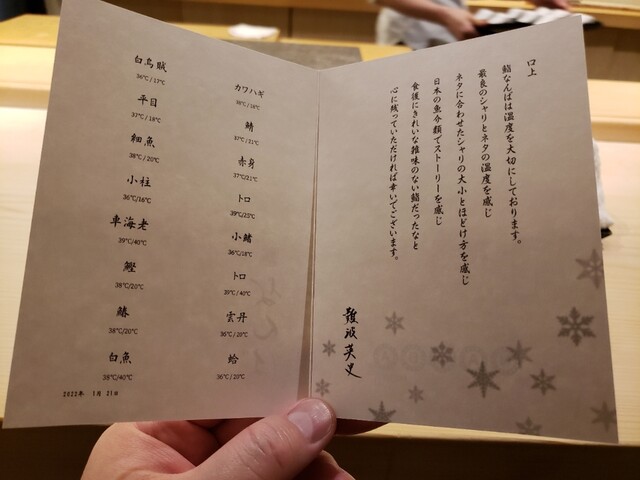 口上
鮨なんばは温度を大切にしております。
最良のシャリとネタの温度を感じ
ネタに合わせたシャリの大小とほどけ方を感じ
日本の魚介類でストーリーを感じ
食後にきれいな雑味のない鮨だったなと
心に残っていただければ幸いでございます。
難波英史
白烏賊
36℃/17℃
平目
37℃/18℃
細魚
38℃/20℃
小柱
36℃/16℃
車海老
39℃/40℃
鰹
38℃/20℃
鰆
38℃/20℃
白魚
38℃/40℃
カワハギ
38℃/18℃
鯖
37℃/21℃
赤身
37℃/21℃
トロ
39℃/23℃
小鰭
36℃/18℃
トロ
39℃/40℃
雲丹
36℃/20℃
蛤
36℃/20℃
2022年 1月 21日